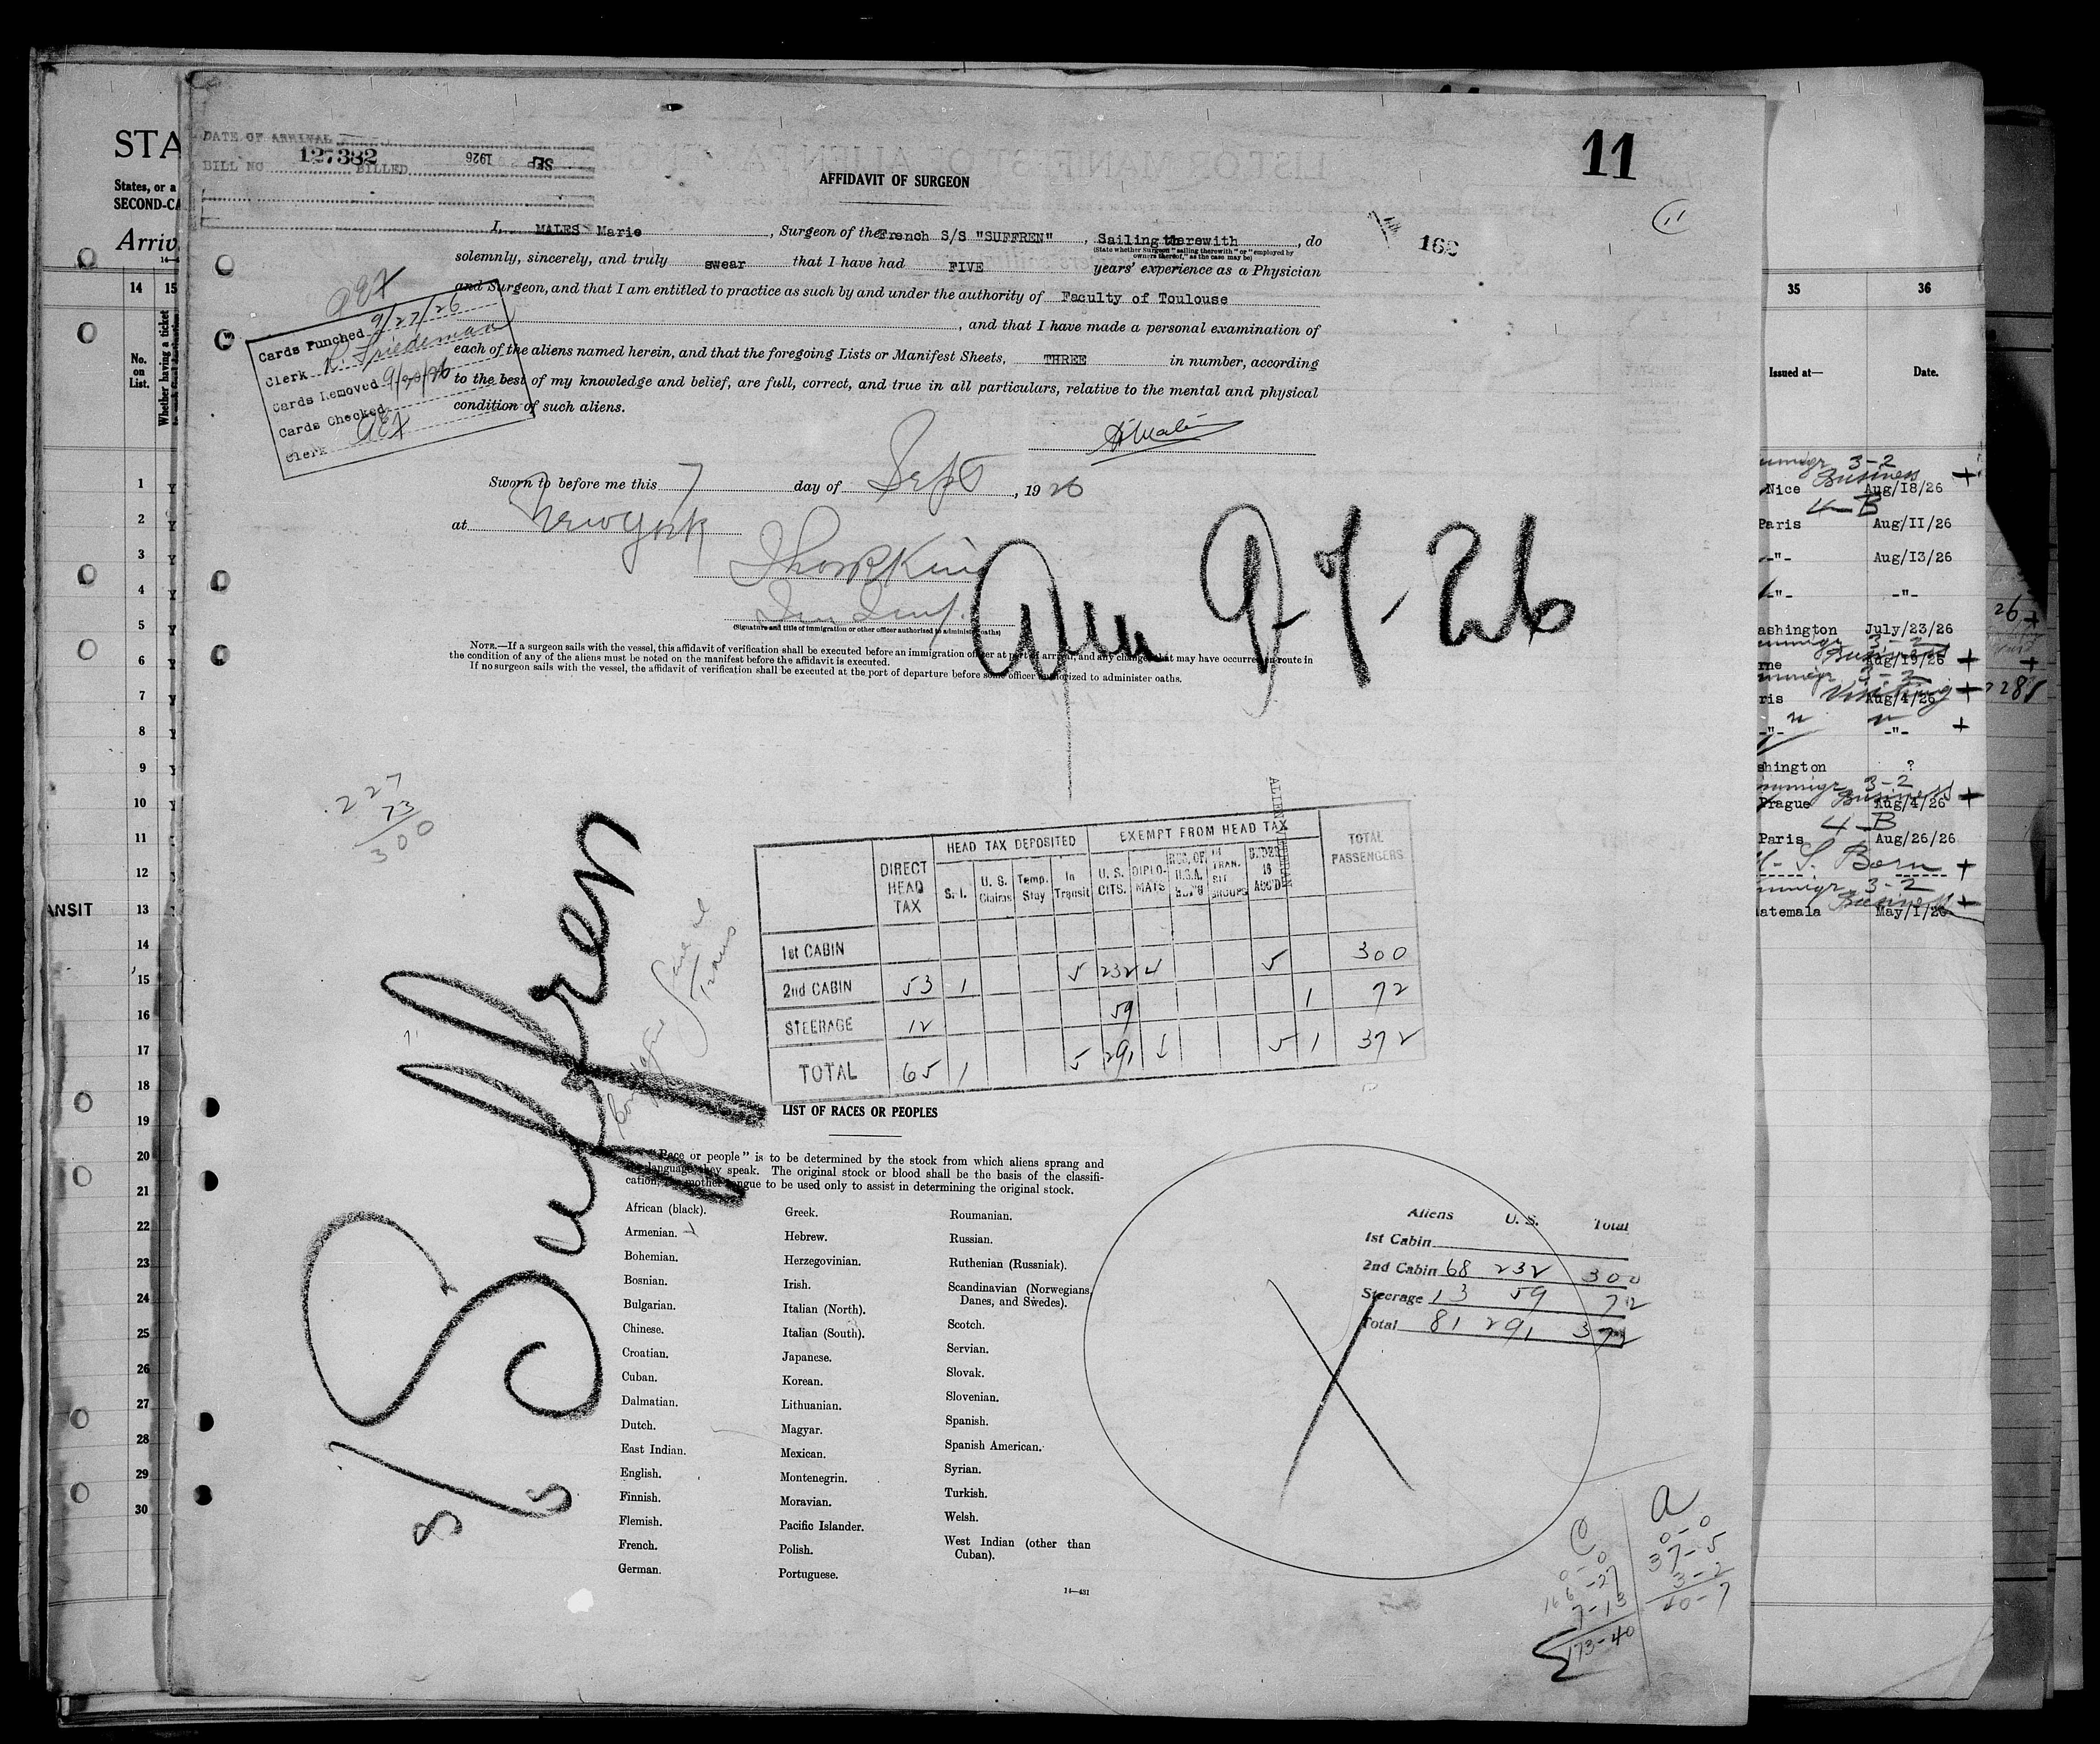 11
DATE OF ARRIVAL
BILL NO 127382 BILLED SEP 1926
AFFIDAVIT OF SURGEON
11
162
I, MALES Marie, Surgeon of the French S/S "SUFFREN", Sailing therewith, do
(State whether Surgeon "sailing therewith" or "employed by
owners thereof," as the case may be)
solemnly, sincerely, and truly swear that I have had FIVE years' experience as a Physician
and Surgeon, and that I am entitled to practice as such by and under the authority of Faculty of Toulouse
, and that I have made a personal examination of
each of the aliens named herein, and that the foregoing Lists or Manifest Sheets, THREE in number, according
to the best of my knowledge and belief, are full, correct, and true in all particulars, relative to the mental and physical
condition of such aliens.
Cards Punched 9/27/26
Clerk R. Friedeman
Cards Removed 9/29/26
Cards Checked
Clerk
Sworn to before me this 7 day of Sept, 1926
at New York
(Signature and title of immigration or other officer authorized to administer oaths)
9-7-26
NOTE.—If a surgeon sails with the vessel, this affidavit of verification shall be executed before an immigration officer at port of arrival, and any changes that may have occurred en route in
the condition of any of the aliens must be noted on the manifest before the affidavit is executed.
If no surgeon sails with the vessel, the affidavit of verification shall be executed at the port of departure before some officer authorized to administer oaths.
227
73
300
Suffren
DIRECT HEAD TAX HEAD TAX DEPOSITED EXEMPT FROM HEAD TAX TOTAL PASSENGERS
S. I. U. S. Claims Temp. Stay In Transit U. S. CITS. DIPLO-MATS RES. OF U.S.A. IN TRAN-SIT GROUPS UNDER 16 ACC'D
1st CABIN
2nd CABIN 53 1 5 232 4 5 300
STEERAGE 12 59 1 72
TOTAL 65 1 5 291 4 5 1 372
LIST OF RACES OR PEOPLES
"Race or people" is to be determined by the stock from which aliens sprang and
the language they speak. The original stock or blood shall be the basis of the classifi-
cation, the mother tongue to be used only to assist in determining the original stock.
African (black).
Armenian.
Bohemian.
Bosnian.
Bulgarian.
Chinese.
Croatian.
Cuban.
Dalmatian.
Dutch.
East Indian.
English.
Finnish.
Flemish.
French.
German.
Greek.
Hebrew.
Herzegovinian.
Irish.
Italian (North).
Italian (South).
Japanese.
Korean.
Lithuanian.
Magyar.
Mexican.
Montenegrin.
Moravian.
Pacific Islander.
Polish.
Portuguese.
Roumanian.
Russian.
Ruthenian (Russniak).
Scandinavian (Norwegians,
Danes, and Swedes).
Scotch.
Servian.
Slovak.
Slovenian.
Spanish.
Spanish American.
Syrian.
Turkish.
Welsh.
West Indian (other than
Cuban).
14—431
Aliens U. S. Total
1st Cabin
2nd Cabin 68 232 300
Steerage 13 59 72
Total 81 291 372
C
0-0
166-27
7-13
173-40
a
0-0
37-5
3-2
40-7
STA
States, or a
SECOND-CA
Arriv
14 15
No.
on
List.
Whether having a ticket
1
2
3
4
5
6
7
8
9
10
11
12
ANSIT 13
14
15
16
17
18
19
20
21
22
23
24
25
26
27
28
29
30
35 36
Issued at— Date.
3-2
Business
Nice Aug/18/26
4-B
Paris Aug/11/26
-"- Aug/13/26
-"- -"-
ashington July/23/26
3-2
Business
rne Aug/19/26
3-2
ris Visiting Aug/4/26
-"- -"-
shington ?
3-2
Prague Business Aug/4/26
4-B
Paris Aug/26/26
U.S. Born
3-2
atemala Business May/1/26